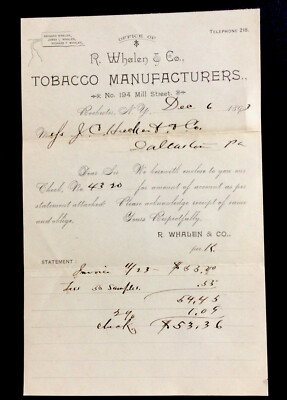 TELEPHONE 218.
OFFICE OF
R. Whalen & Co.,
TOBACCO MANUFACTURERS.,
No. 194 Mill Street.
Rochester, N.Y. Dec 6 189
Messrs J. C. & Co.
Dallastown Pa
Dear Sir We herewith enclose to you our
Check No. 4320 for amount of account as per
statement attached. Please acknowledge receipt of same
and oblige, Yours Respectfully,
R. WHALEN & CO.,
per K
STATEMENT:
Invoice 11/23 $55.00
Less samples .55
54.45
2% 1.09
check $53.36